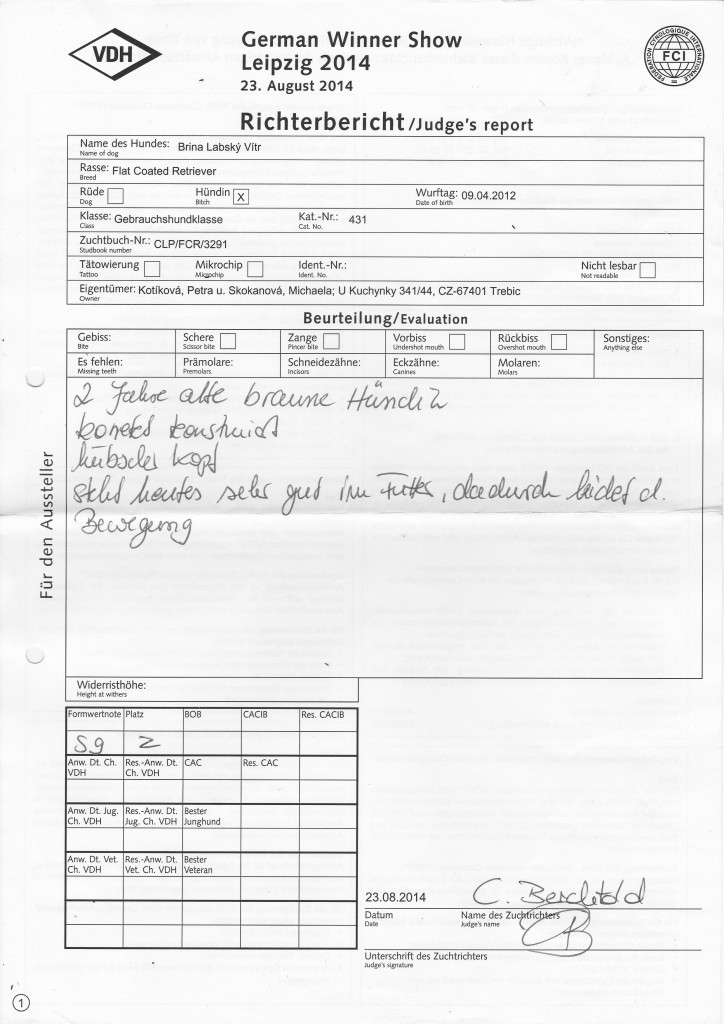 VDH
German Winner Show
Leipzig 2014
23. August 2014
FEDERATION CYNOLOGIQUE INTERNATIONALE
FCI
Richterbericht /Judge's report
Name des Hundes: Brina Labský Vítr
Name of dog
Rasse: Flat Coated Retriever
Breed
Rüde Hündin X Wurftag: 09.04.2012
Dog Bitch Date of birth
Klasse: Gebrauchshundklasse Kat.-Nr.: 431
Class Cat. No.
Zuchtbuch-Nr.: CLP/FCR/3291
Studbook number
Tätowierung Mikrochip Ident.-Nr.: Nicht lesbar
Tattoo Microchip Ident. No. Not readable
Eigentümer: Kotíková, Petra u. Skokanová, Michaela; U Kuchynky 341/44, CZ-67401 Trebic
Owner
Beurteilung/Evaluation
Gebiss: Schere Zange Vorbiss Rückbiss Sonstiges:
Bite Scissor bite Pincer bite Undershot mouth Overshot mouth Anything else
Es fehlen: Prämolare: Schneidezähne: Eckzähne: Molaren:
Missing teeth Premolars Incisors Canines Molars
2 Jahre alte braune Hündin
korrekt konstruiert
hübscher Kopf
steht heute sehr gut im Futter, dadurch leidet d.
Bewegung
Für den Aussteller
Widerristhöhe:
Height at withers
Formwertnote Platz BOB CACIB Res. CACIB
Sg 2
Anw. Dt. Ch. Res.-Anw. Dt. CAC Res. CAC
VDH Ch. VDH
Anw. Dt. Jug. Res.-Anw. Dt. Bester
Ch. VDH Jug. Ch. VDH Junghund
Anw. Dt. Vet. Res.-Anw. Dt. Bester
Ch. VDH Vet. Ch. VDH Veteran
23.08.2014 C. Berchtold
Datum Name des Zuchtrichters
Date Judge's name
Unterschrift des Zuchtrichters
Judge's signature
1